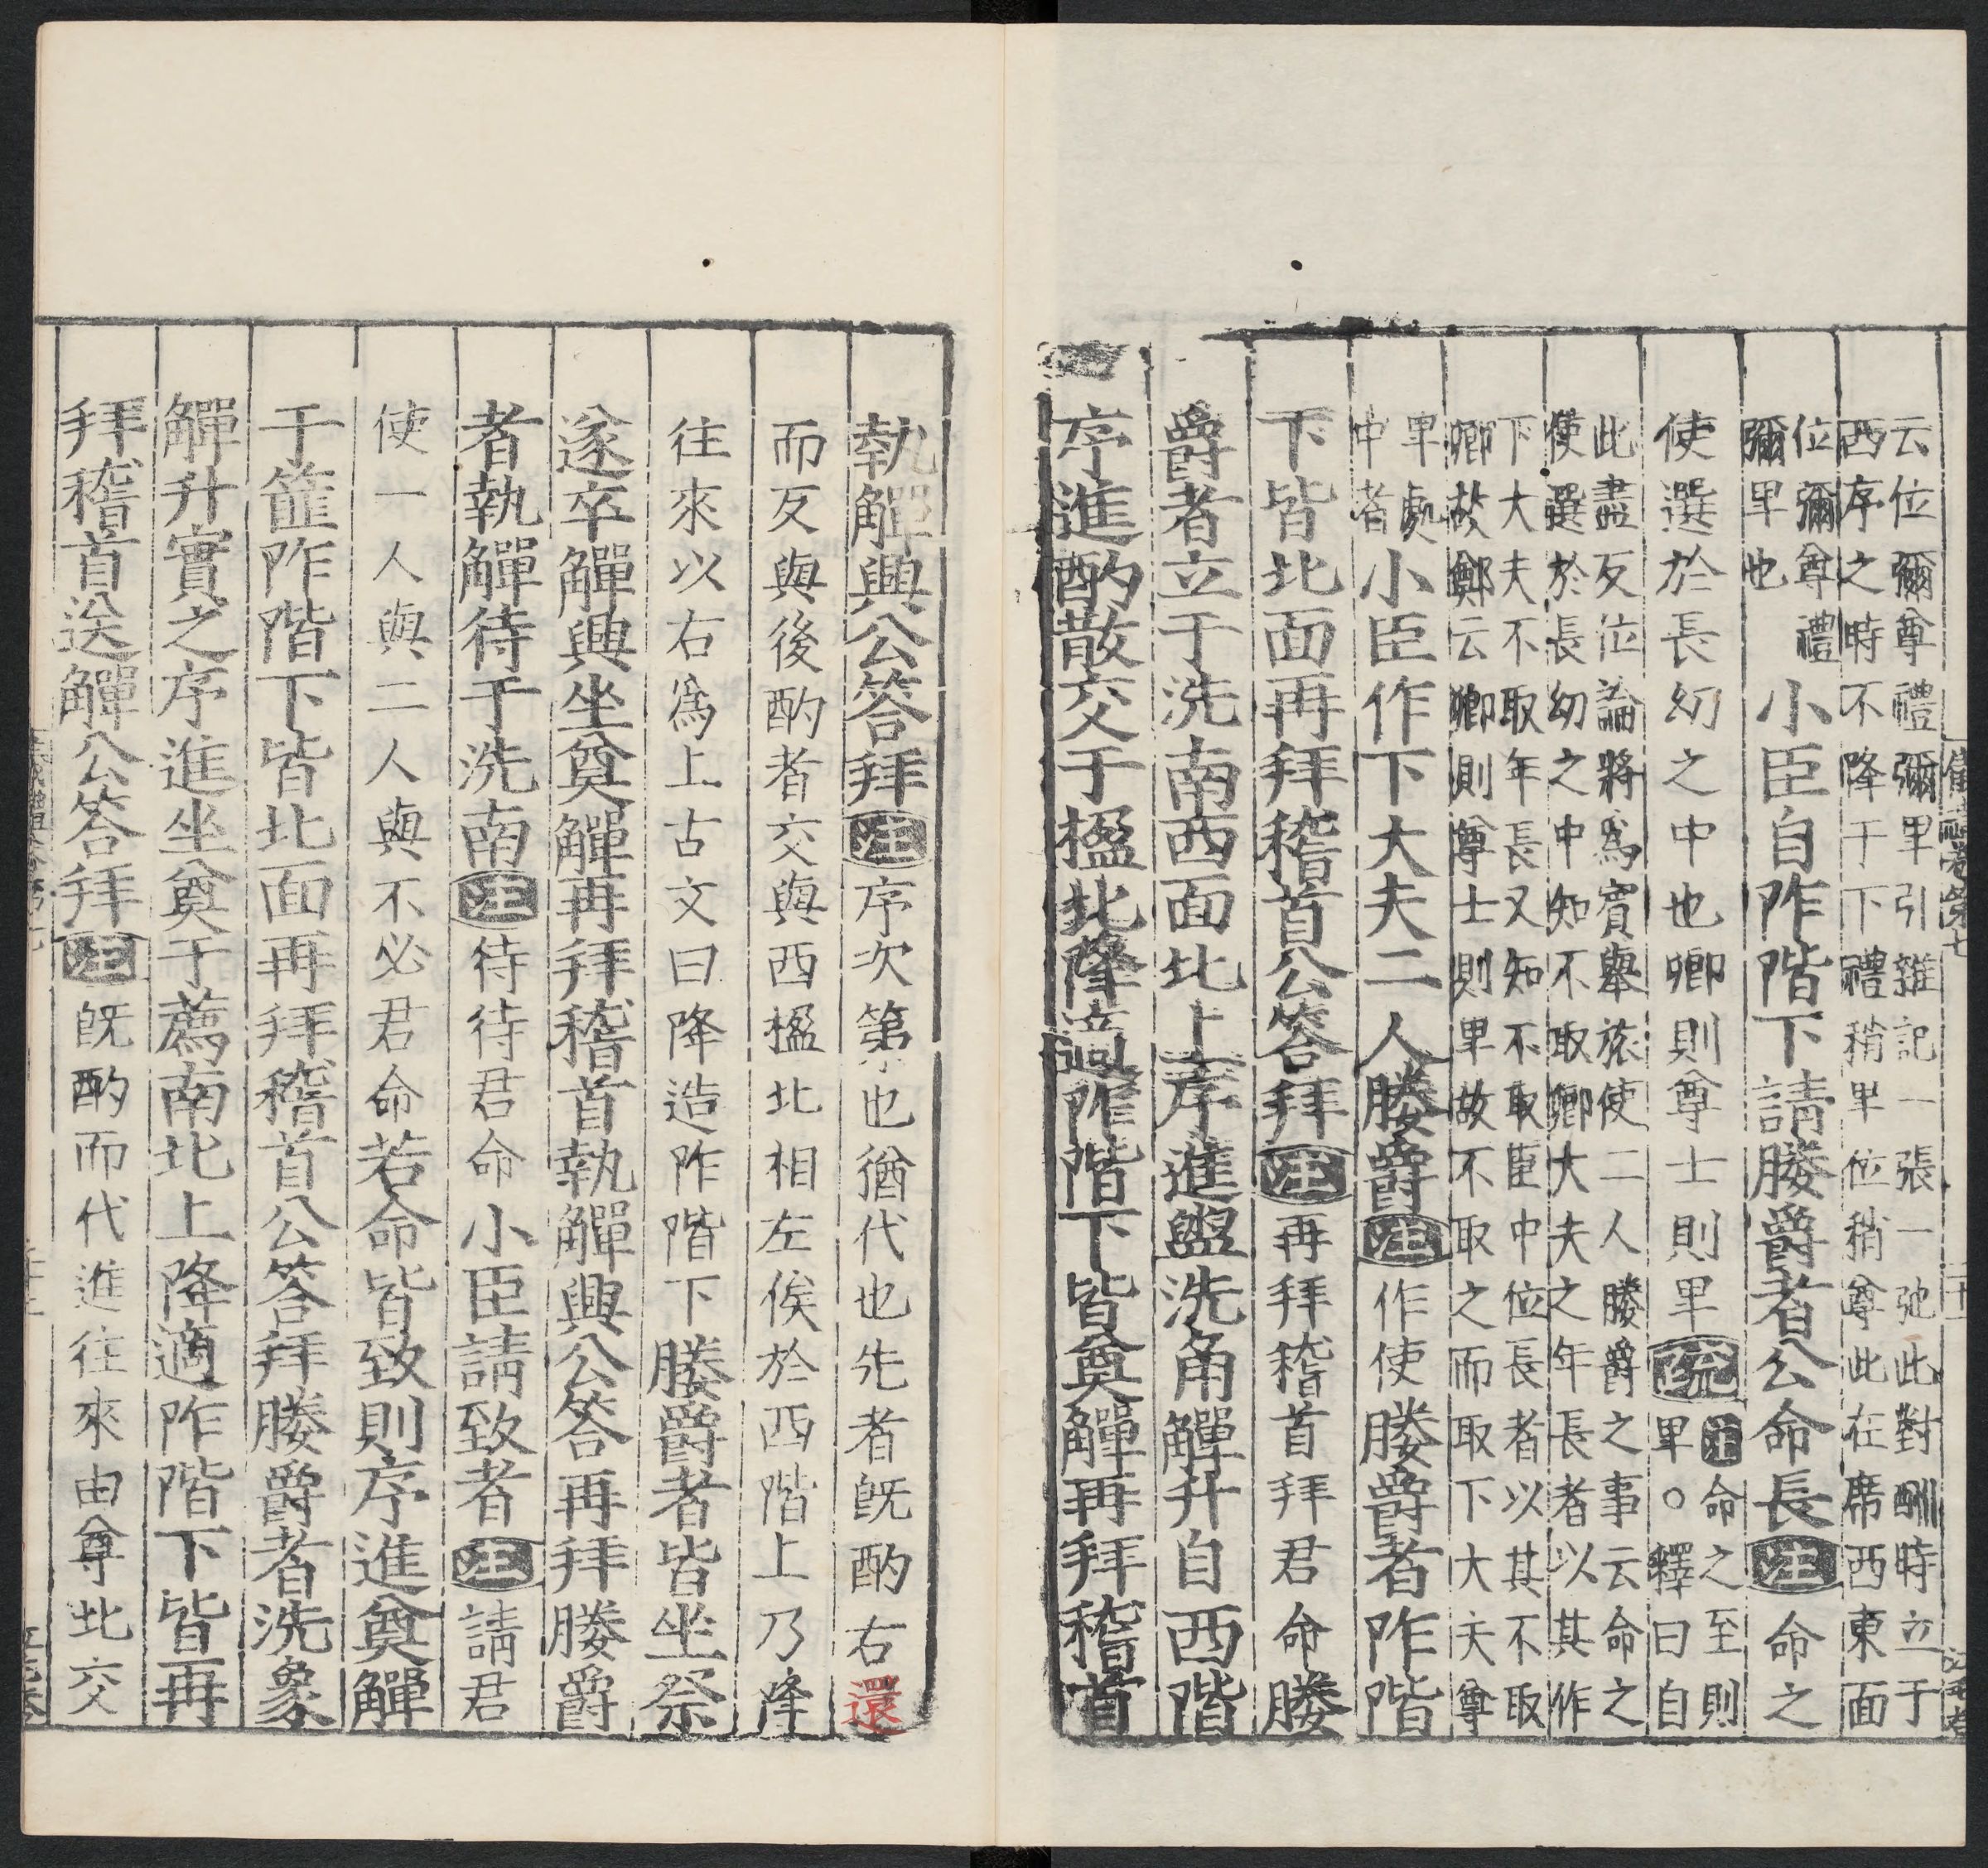 云位彌尊禮彌卑引雜記一張一弛此對酬時立于
西序之時不降于下禮稍卑位稍尊此在席西東面
位彌尊禮
彌卑也
小臣自阼階下請媵爵者公命長注命之
使選於長幼之中也卿則尊士則卑疏
注命之至則
卑○釋曰自
此盡反位論將爲賓舉旅使二人媵爵之事云命之
使選於長幼之中知不取卿大夫之年長者以其作
下大夫不取年長又知不取臣中位長者以其不取
卿故鄭云卿則尊士則卑故不取之而取下大夫尊
卑處
中者
小臣作下大夫二人媵爵注作使媵爵者阼階
下皆北面再拜稽首公答拜注再拜稽首拜君命媵
爵者立于洗南西面北上序進盥洗角觶升自西階
序進酌散交于楹北降適阼階下皆奠觶再拜稽首
執觶興公答拜注序次第也猶代也先者既酌右還
而反與後酌者交與西楹北相左俟於西階上乃降
往來以右爲上古文曰降造阼階下媵爵者皆坐祭
遂卒觶興坐奠觶再拜稽首執觶興公答再拜媵爵
者執觶待于洗南注待待君命小臣請致者注請君
使一人與二人與不必君命若命皆致則序進奠觶
于篚阼階下皆北面再拜稽首公答拜媵爵者洗象
觶升實之序進坐奠于薦南北上降適阼階下皆再
拜稽首送觶公答拜注既酌而代進往來由尊北交